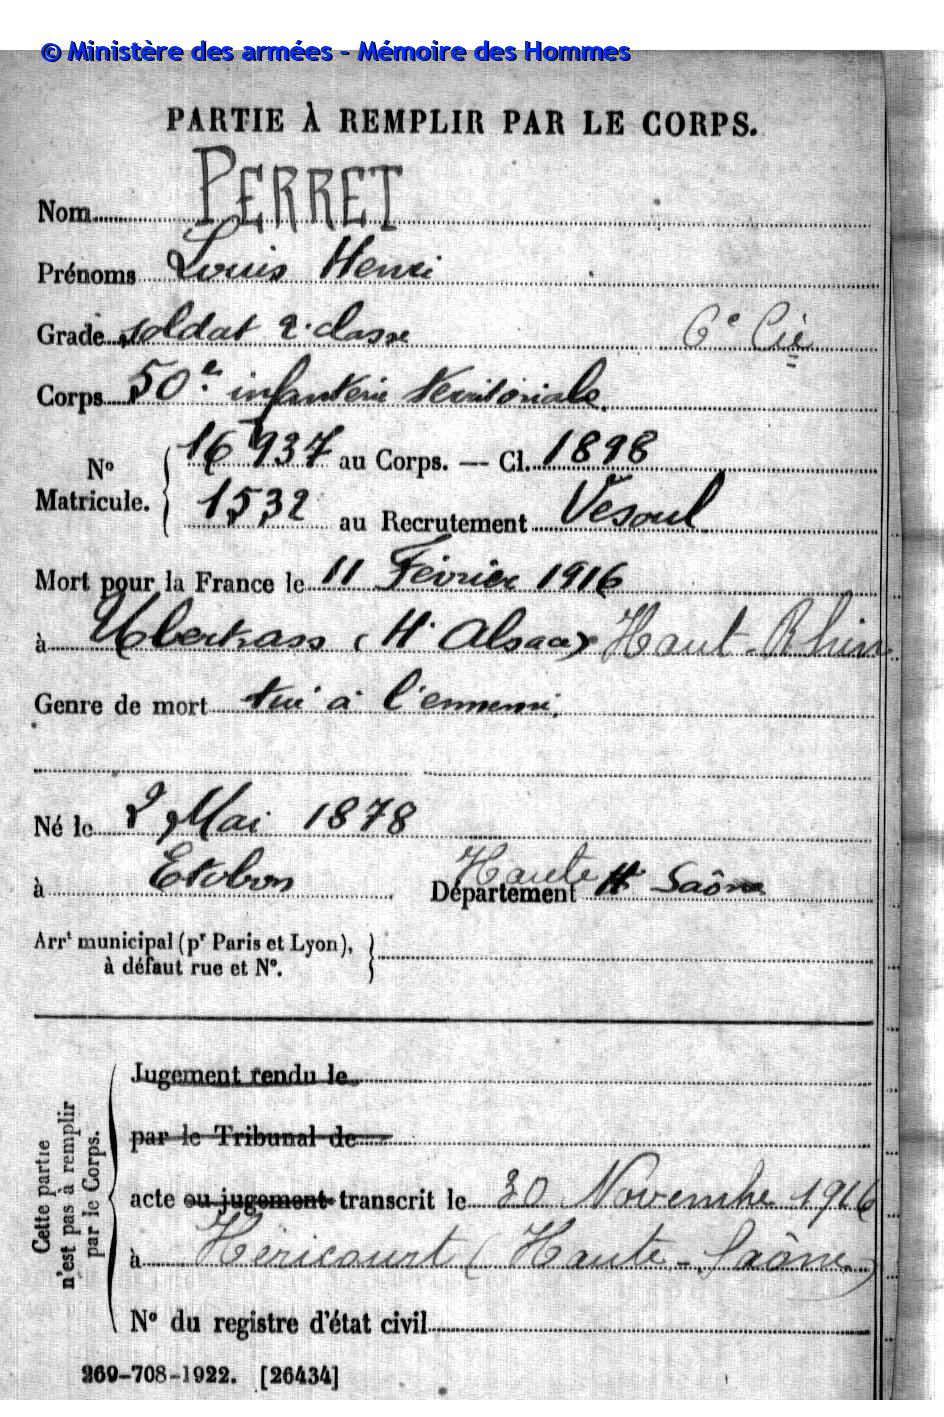 © Ministère des armées - Mémoire des Hommes
PARTIE À REMPLIR PAR LE CORPS.
Nom PERRET
Prénoms Louis Henri
Grade soldat 2e classe 6e Cie
Corps 50e infanterie territoriale
No Matricule. { 16937 au Corps. — Cl. 1898
1532 au Recrutement Vesoul
Mort pour la France le 11 Février 1916
à Uberkass (Hte Alsace) Haut-Rhin
Genre de mort tué à l'ennemi.
Né le 2 Mai 1878
à Etobon Département Haute Hte Saône
Arrt municipal (pr Paris et Lyon), à défaut rue et No. }
Cette partie n'est pas à remplir par le Corps.
Jugement rendu le
par le Tribunal de
acte ou jugement transcrit le 30 Novembre 1916
à Héricourt (Haute-Saône)
No du registre d'état civil
269-708-1922. [26434]